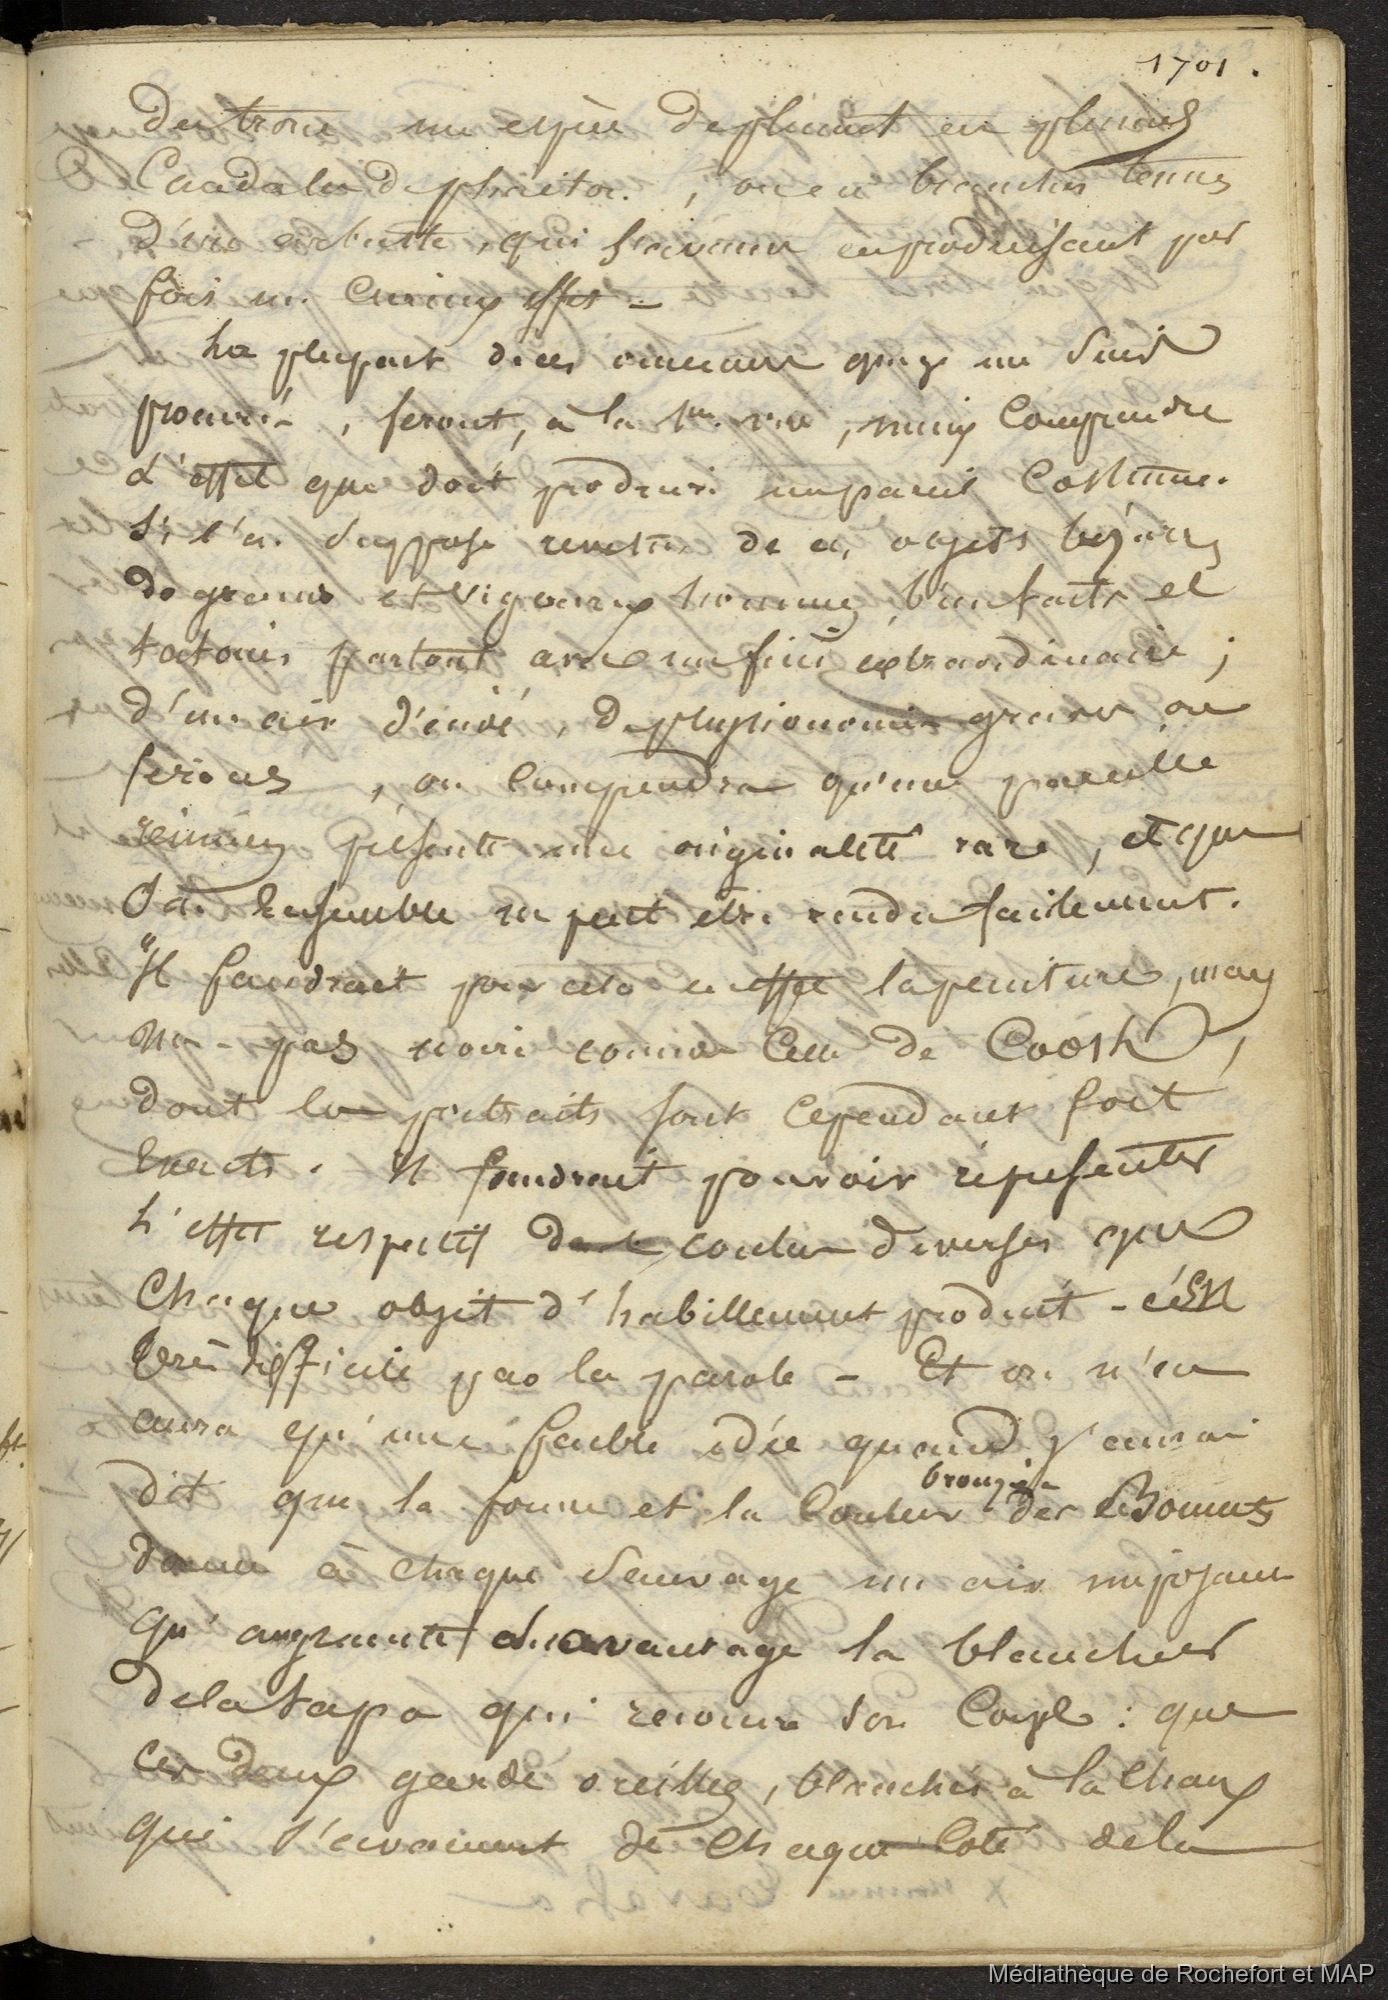 1701.
une espèce de plumet en plumes
Caudales de phaëton, ou en branches tenues
d'un arbuste, qui s'avance en produisant par
fois un curieux effet —
La plupart de ces ornemens que je me suis
procuré, feront, à la 1ere vue, mieux comprendre
L'effet que doit produire un pareil Costume.
Si l'on suppose revetus de ces objets bizarres
de grands et vigoureux hommes bienfaits et
tatoués partout avec un fini extraordinaire ;
d'un air d'énivé, de physionomie graves ou
serieuses, on comprendra qu'une pareille
réunion présente une originalité rare, et que
Son Ensemble ne peut être rendu facilement.
"Il faudrait pour cela en effet la peinture, mais
non - pas noire comme Celle de Cook,
dont les portraits sont cependant fort
Exacts. Il faudrait pouvoir représenter
L'effet respectif des couleurs diverses que
Chaque objet d'habillement produit - c'est
très difficile par la parole - Et on n'en
aura qu'une faible idée quand j'aurai
dit que la forme et la Couleur bronzée des Bonnets
donne à chaque Sauvage un air imposant
qu'augmente davantage la blancheur
de la tapa qui recouvre son Corps : que
ces deux garde oreilles, blanchis à la Chaux
qui s'avancent de Chaque Coté de la
Médiathèque de Rochefort et MAP